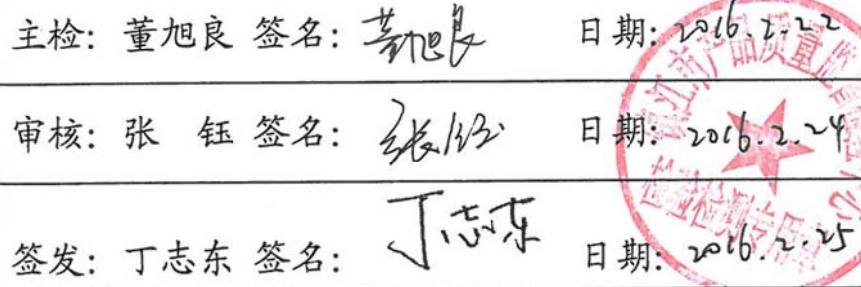 主检: 董旭良 签名: 董旭良 日期: 2016.2.22
审核: 张 钰 签名: 张钰 日期: 2016.2.24
签发: 丁志东 签名: 丁志东 日期: 2016.2.25
镇江市产品质量监督
检验检测专用章